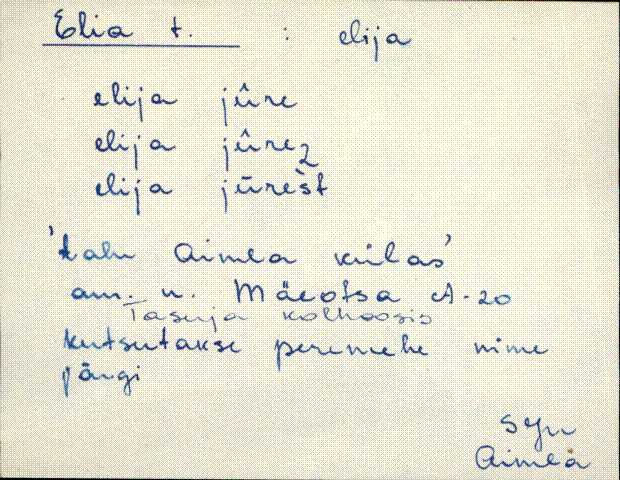 Elia t. : elija
elija jûre
elija jûrez
elija jūrèst
'talu Aimla külas'
am. n. Mäeotsa A-20
Tasuja kolhoosis
kutsutakse peremehe nime
järgi
Aimla